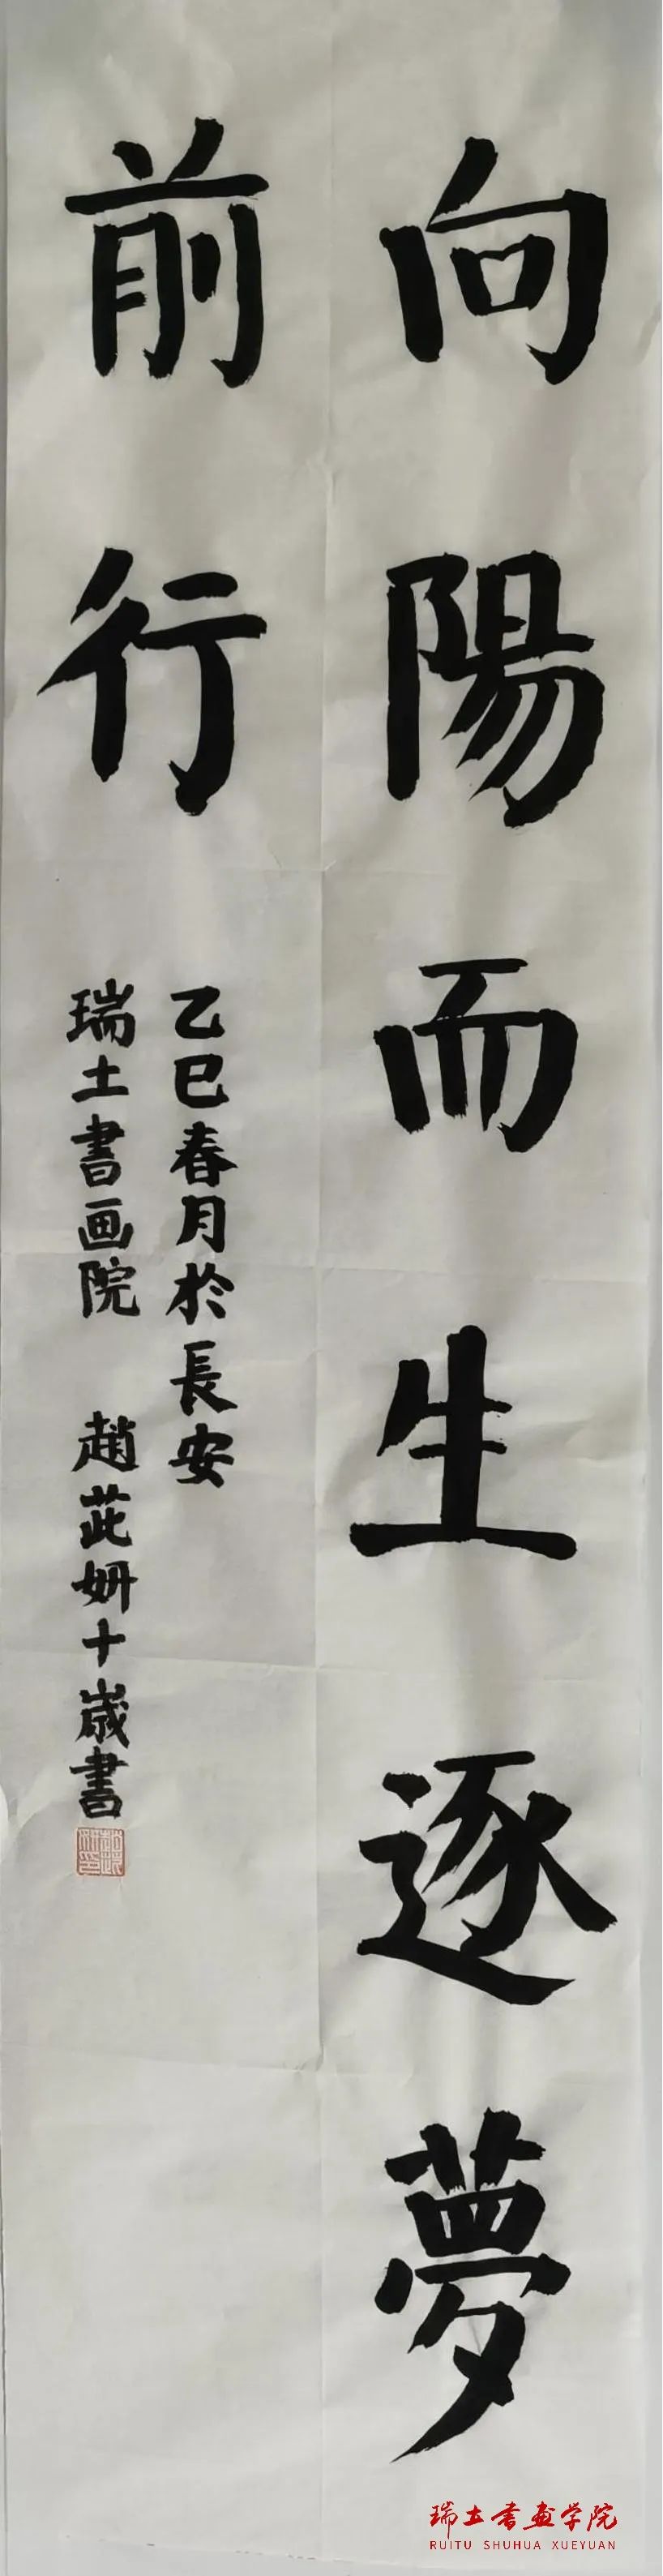 向陽而生逐夢
前行
乙巳春月於長安
瑞土書画院 趙茈妍十歲書
瑞土书画学院
RUITU SHUHUA XUEYUAN